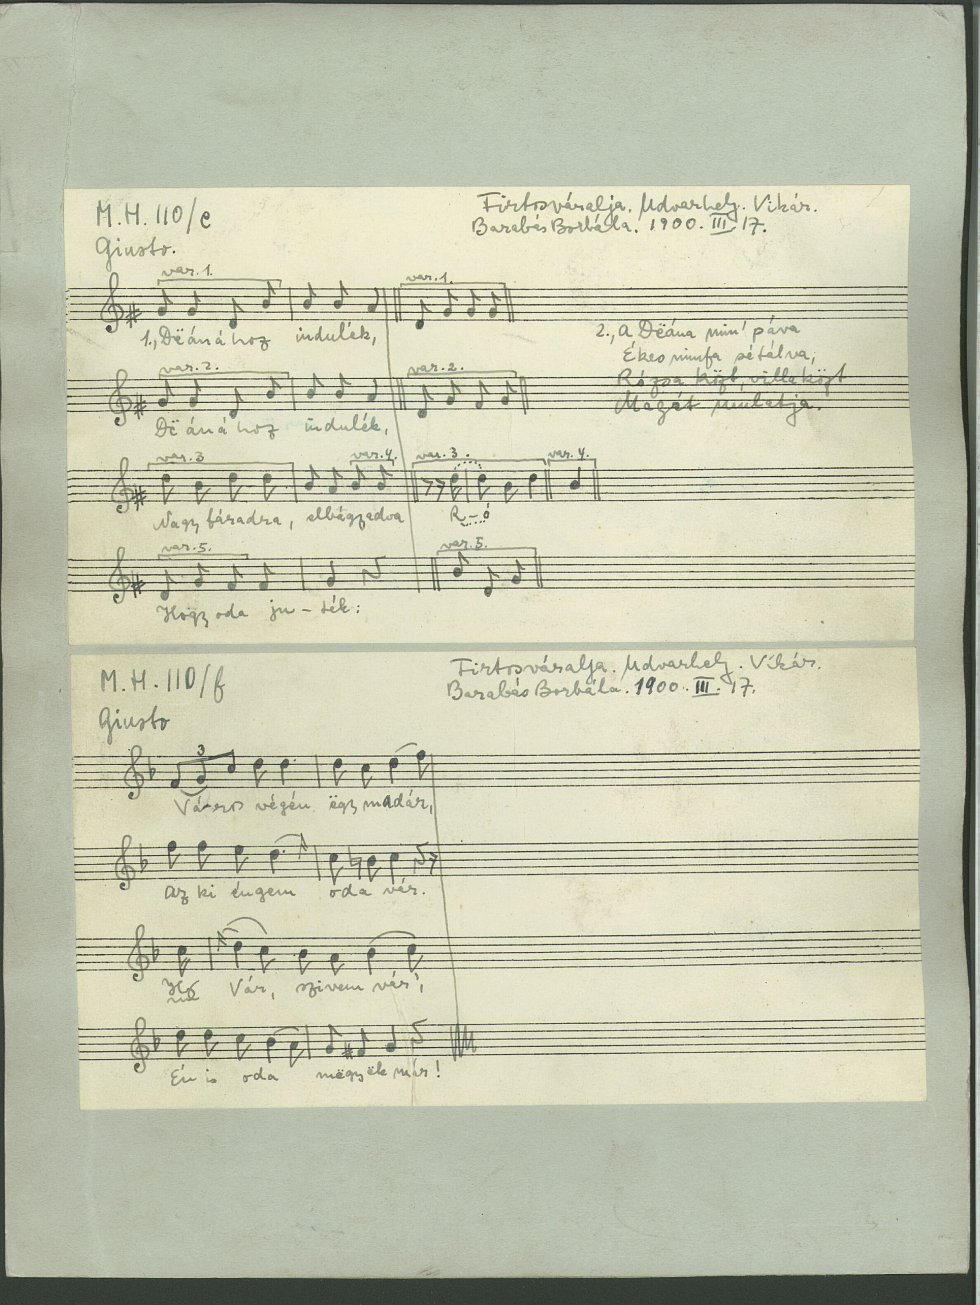 M.H. 110/e
Firtosváralja. Udvarhely. Vikár.
Barabás Borbála. 1900. III. 17.
Giusto.
var. 1. var. 1.
1., Dëáná hoz indulék,
2., A Dëána min' páva
Ékes nimfa sétálva,
Rózsa közt, villa közt
Magát mulatja.
var. 2. var. 2.
Dëáná hoz indulék,
var. 3 var. 4. var. 3. var. 4.
Nagy fáradra, elbágyadva R-ó
var. 5. var. 5.
Hogy oda ju-ték:
M.H. 110/f
Firtosváralja. Udvarhely. Vikár.
Barabás Borbála. 1900. III. 17.
Giusto
3
Város végén ëgy madár,
Az ki éngem oda vár.
Vár, szivem vár',
Én is oda mëgyëk már!